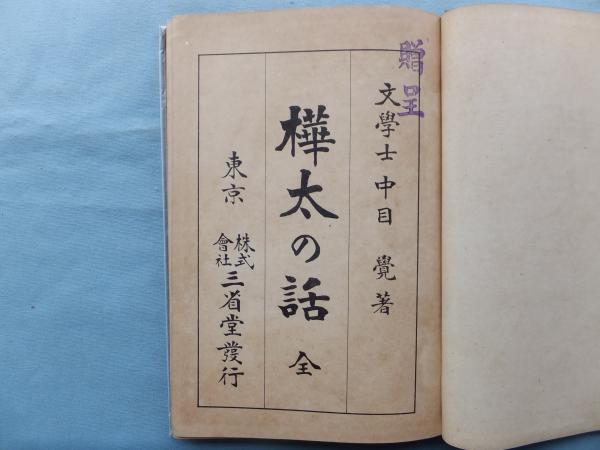 贈呈
文學士 中目 覺 著
樺太の話 全
東京 株式會社 三省堂發行